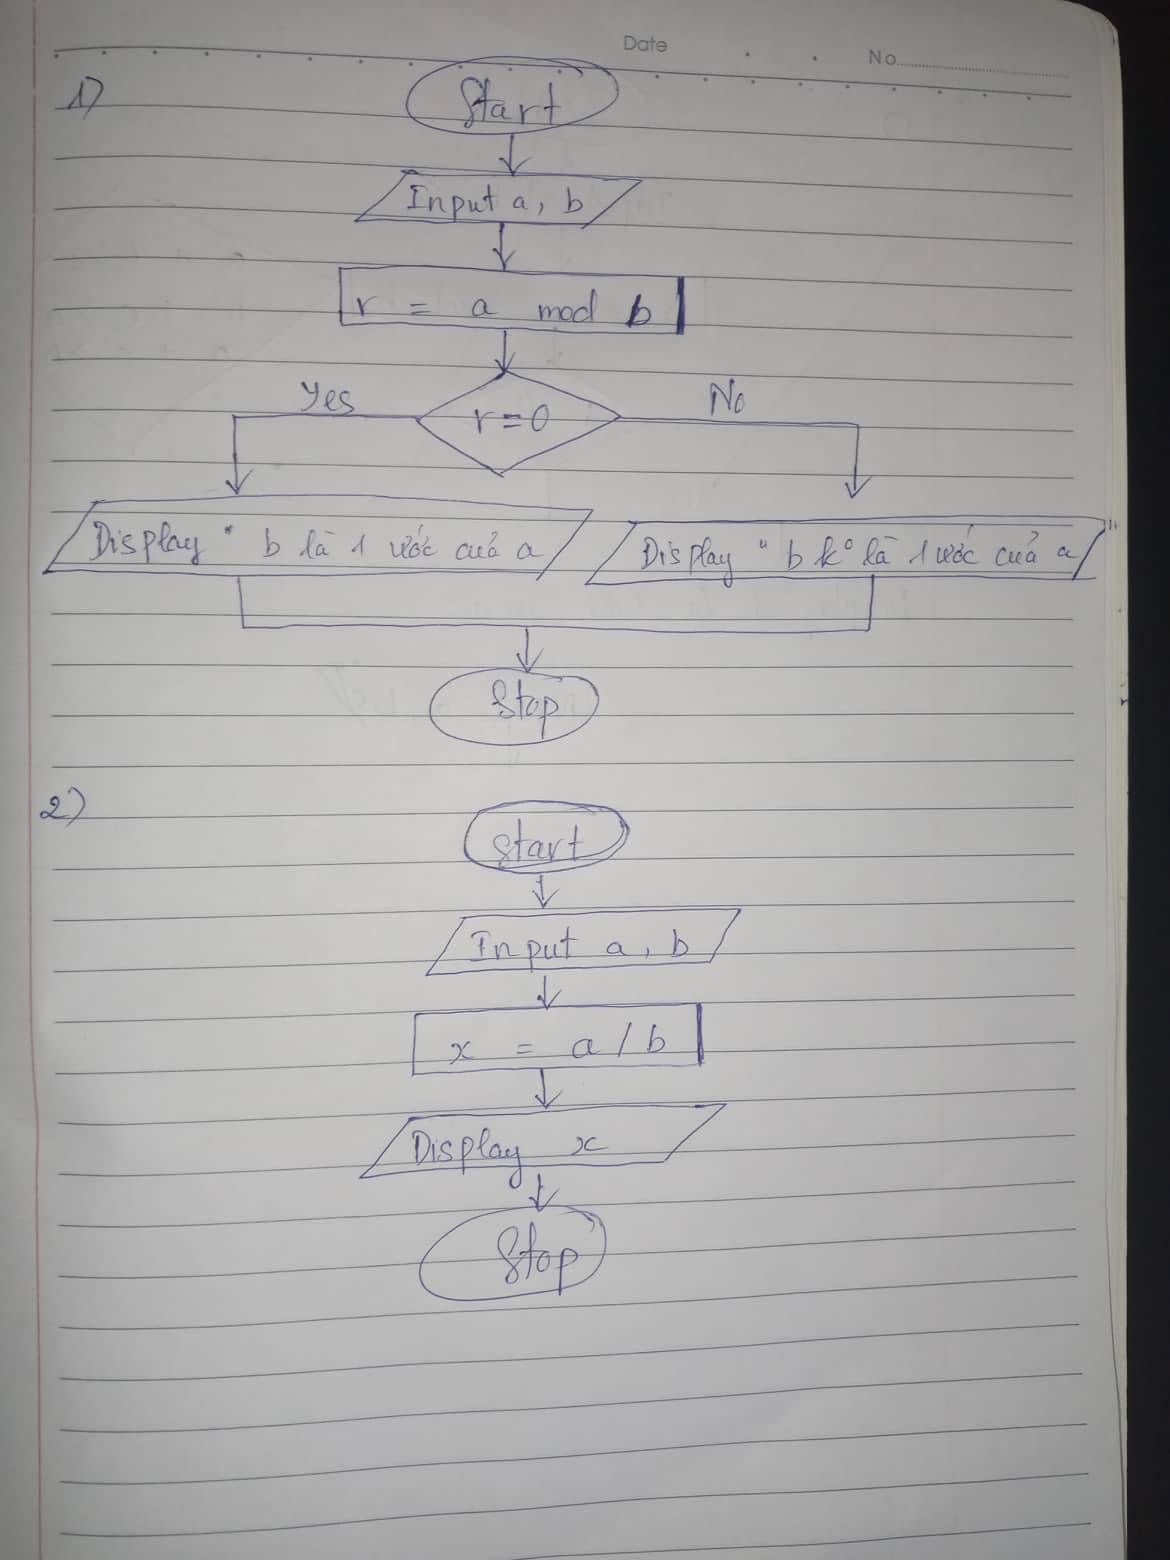 Date
No
1)
Start
Input a, b
r = a mod b
r = 0
Yes
No
Display " b là 1 ước cuả a
Display " b k° là 1 ước cuả a "
Stop
2)
Start
Input a, b
x = a / b
Display x
Stop